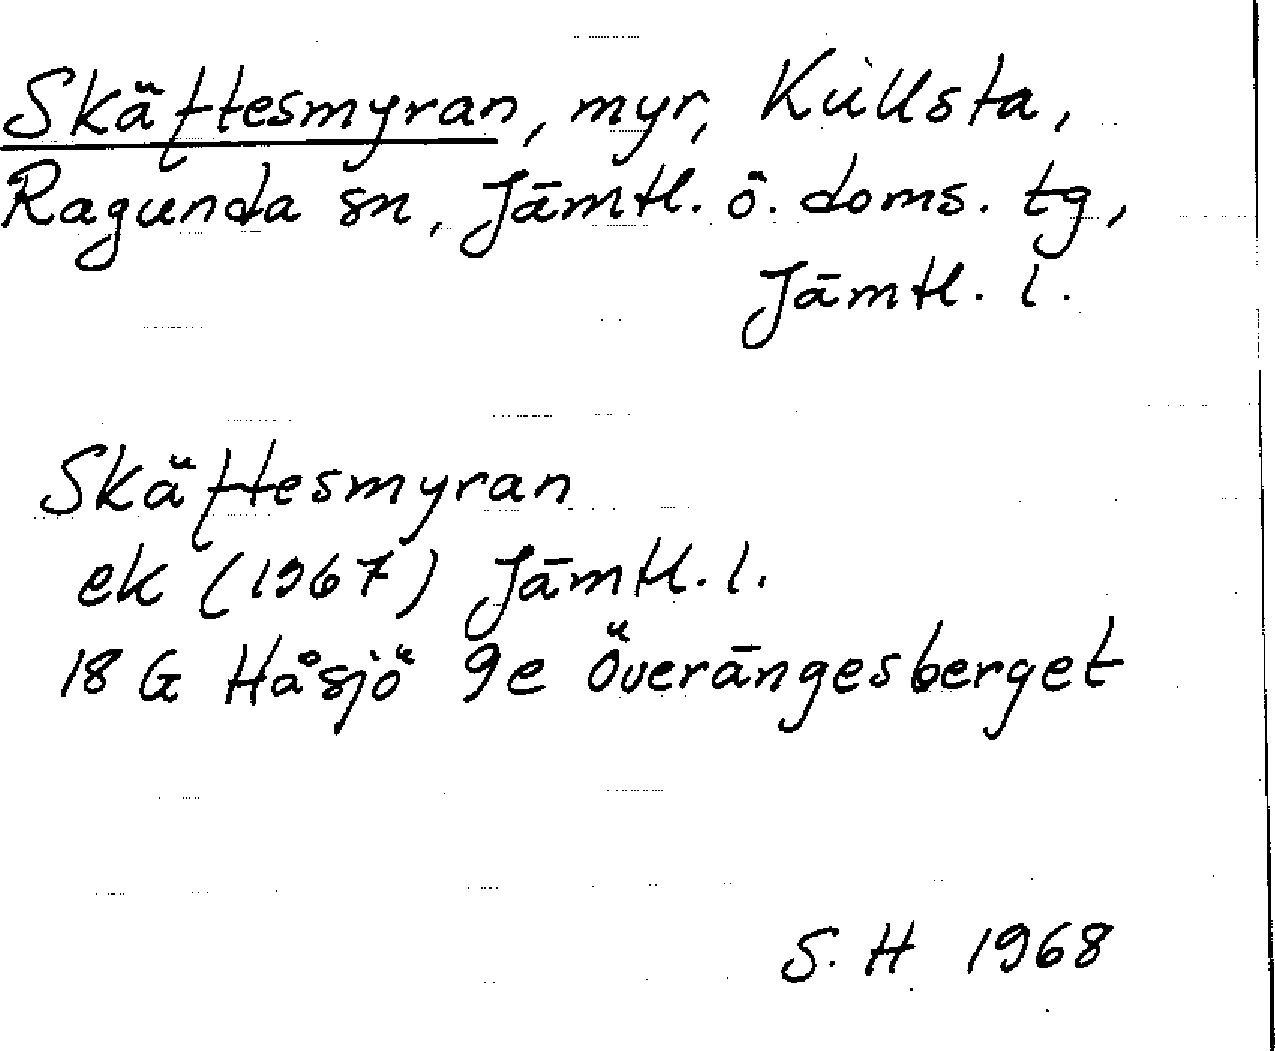 Skäftesmyran, myr, Kullsta,
Ragunda sn, Jämtl. ö. doms. tg,
Jämtl. l.
Skäftesmyran
ek (1967) Jämtl. l.
18 G Håsjö 9e Överängesberget
S. H 1968